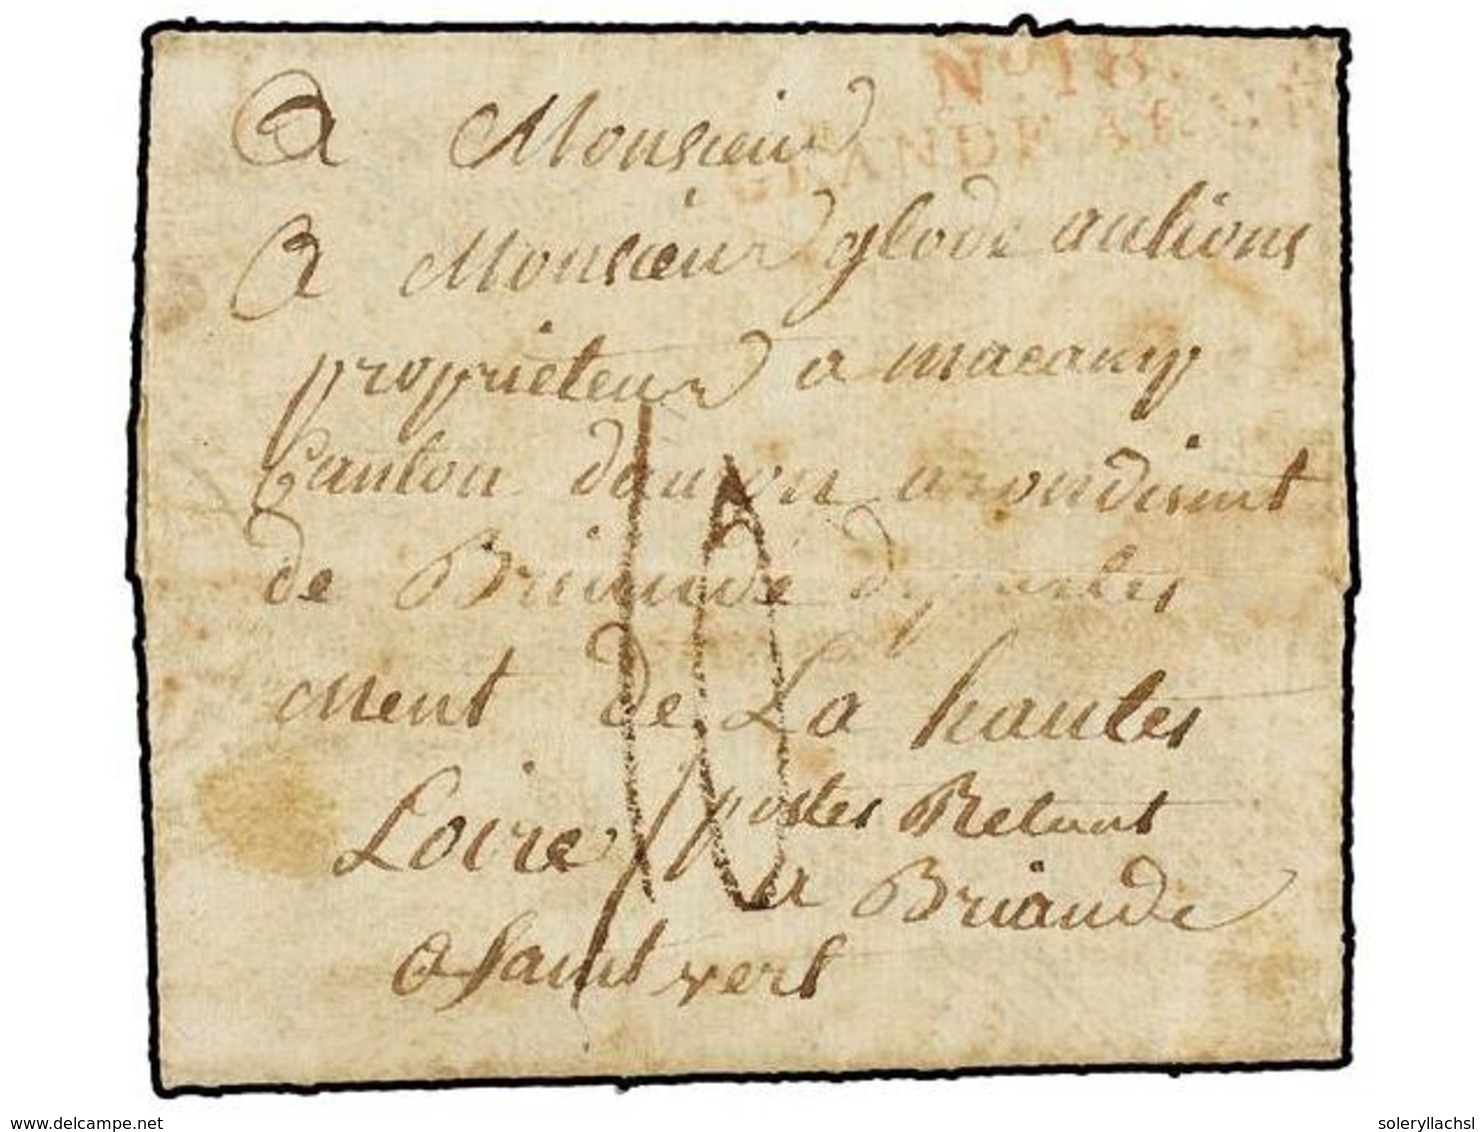 No 18.
GRANDE ARMÉE
A Monsieur
A Monsieur glode aulions
proprieteur a macamp
Canton dauzon arondisint
de Briande departes
ment de La hautes
Loire postes Restant
a Briande
a Saint vert
10
delcampe.net
soleryllachsl